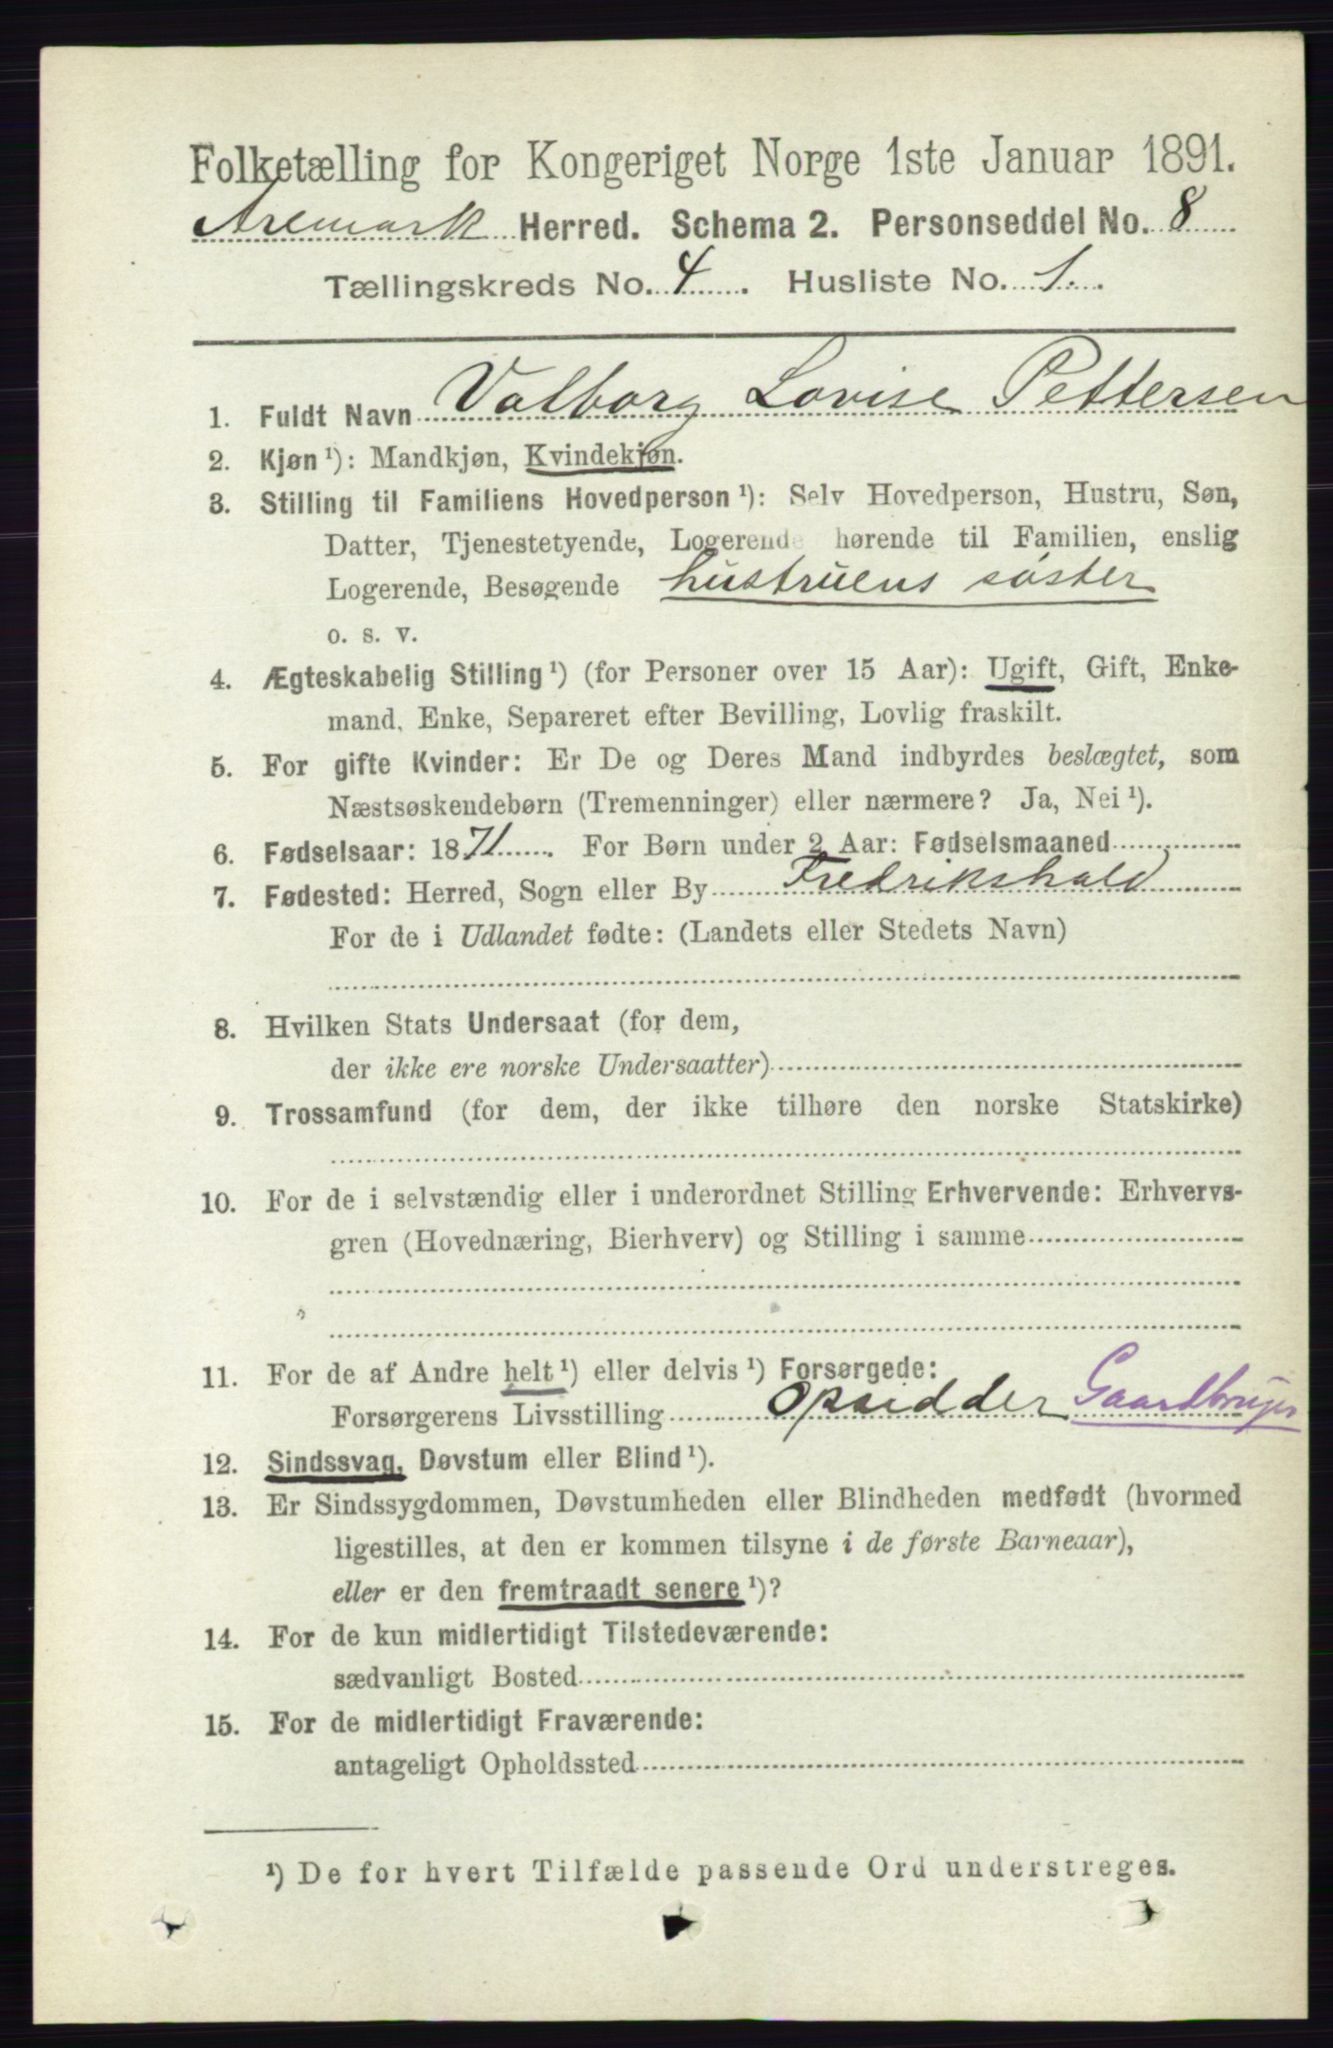 Folketælling for Kongeriget Norge 1ste Januar 1891.
Aremark Herred. Schema 2. Personseddel No. 8
Tællingskreds No. 4. Husliste No. 1.
1. Fuldt Navn Valborg Lovise Pettersen
2. Kjøn ¹): Mandkjøn, Kvindekjøn.
3. Stilling til Familiens Hovedperson ¹): Selv Hovedperson, Hustru, Søn,
Datter, Tjenestetyende, Logerende hørende til Familien, enslig
Logerende, Besøgende hustruens søster
o. s. v.
4. Ægteskabelig Stilling ¹) (for Personer over 15 Aar): Ugift, Gift, Enke-
mand, Enke, Separeret efter Bevilling, Lovlig fraskilt.
5. For gifte Kvinder: Er De og Deres Mand indbyrdes beslægtet, som
Næstsøskendebørn (Tremenninger) eller nærmere? Ja, Nei ¹).
6. Fødselsaar: 1871. For Børn under 2 Aar: Fødselsmaaned
7. Fødested: Herred, Sogn eller By Fredrikshald
For de i Udlandet fødte: (Landets eller Stedets Navn)
8. Hvilken Stats Undersaat (for dem,
der ikke ere norske Undersaatter)
9. Trossamfund (for dem, der ikke tilhøre den norske Statskirke)
10. For de i selvstændig eller i underordnet Stilling Erhvervende: Erhvervs-
gren (Hovednæring, Bierhverv) og Stilling i samme
11. For de af Andre helt ¹) eller delvis ¹) Forsørgede:
Forsørgerens Livsstilling Opsidder Gaardbruger
12. Sindssvag, Døvstum eller Blind ¹).
13. Er Sindssygdommen, Døvstumheden eller Blindheden medfødt (hvormed
ligestilles, at den er kommen tilsyne i de første Barneaar),
eller er den fremtraadt senere ¹)?
14. For de kun midlertidigt Tilstedeværende:
sædvanligt Bosted
15. For de midlertidigt Fraværende:
antageligt Opholdssted
¹) De for hvert Tilfælde passende Ord understreges.